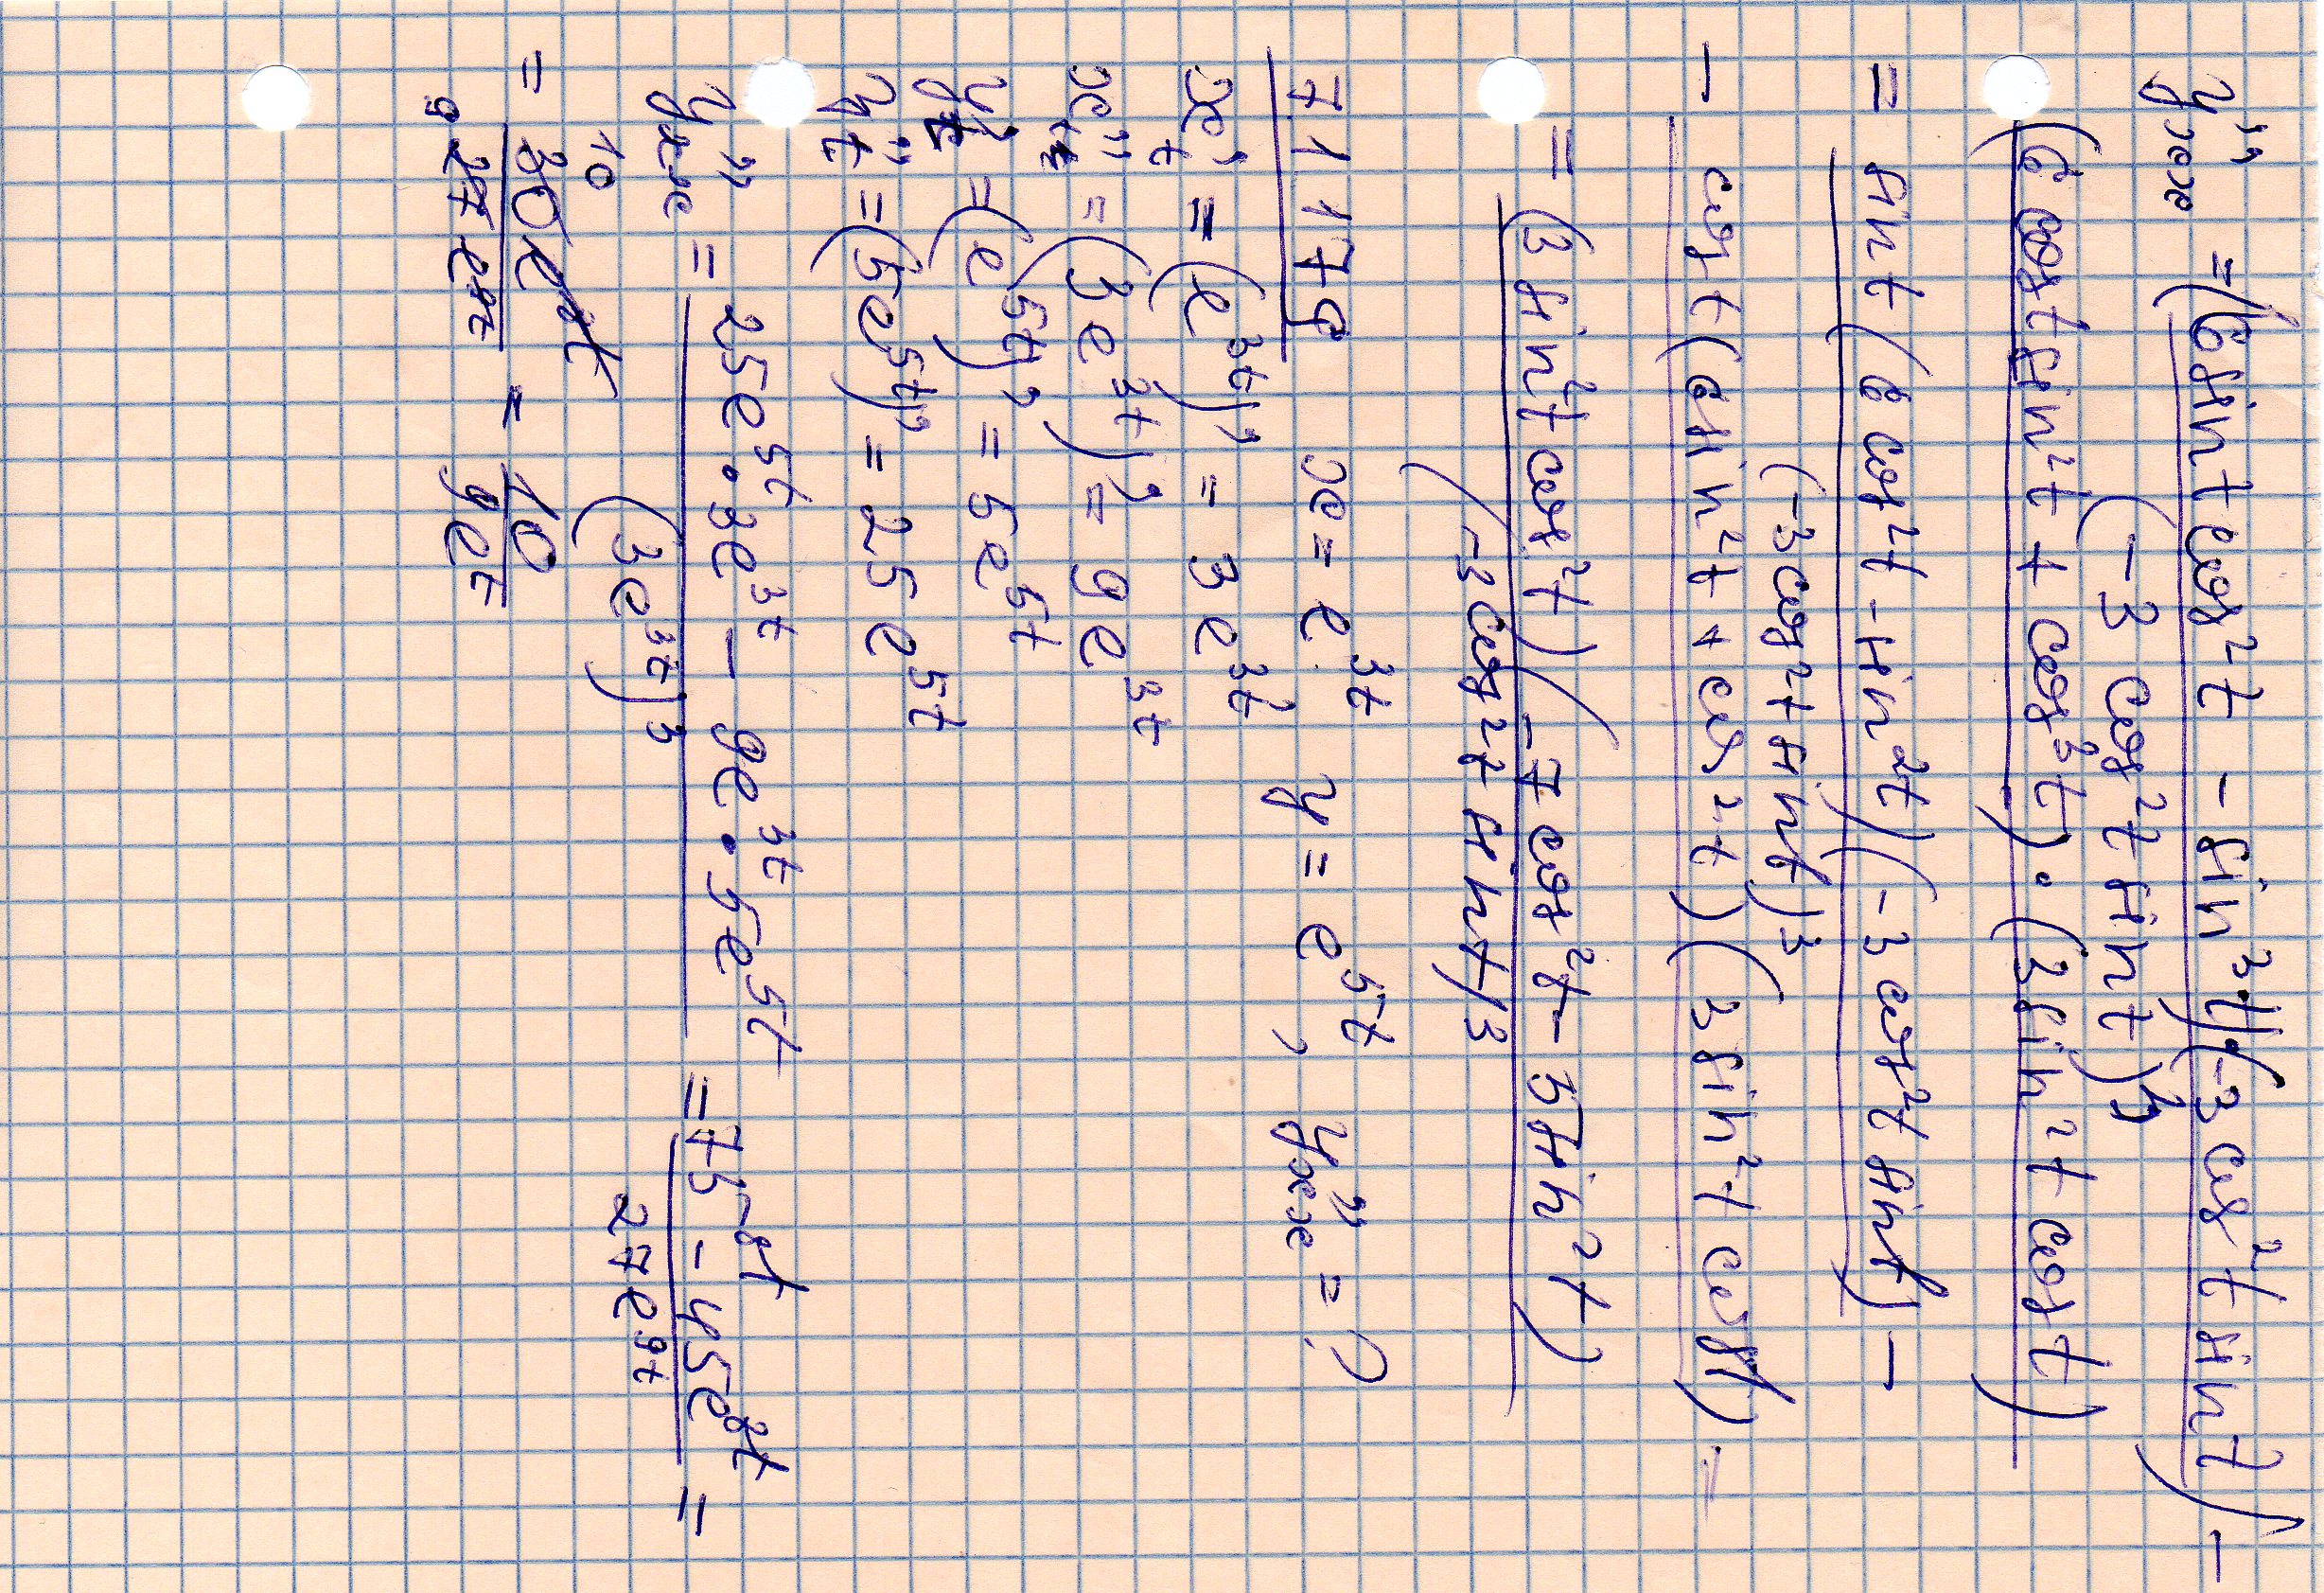 y''xx = (6sint cos²t - sin³t)·(-3 cos²t sint) -
(-3 cos²t sint)
(6 cost sin²t + cos³t)·(3sin²t cost)
= sint(6cos²t - sin²t)(-3cos²t sint) -
(-3cos²t sint)3
- cost(6sin²t + cos²t)(3sin²t cost) =
= (3sin²t cos²t)(-7cos²t - 5sin²t)
(-3cos²t sint)3
7.1.179 x = e^3t, y = e^5t, y''xx = ?
x't = (e^3t)' = 3e^3t
x''tt = (3e^3t)' = 9e^3t
y't = (e^5t)' = 5e^5t
y''t = (5e^5t)' = 25e^5t
y''xx = 25e^5t·3e^3t - 9e^3t·5e^5t = 75^8t - 45e^8t =
(3e^3t)^3 27e^9t
10
= 30e^8t = 10
9 27e^9t 9e^t